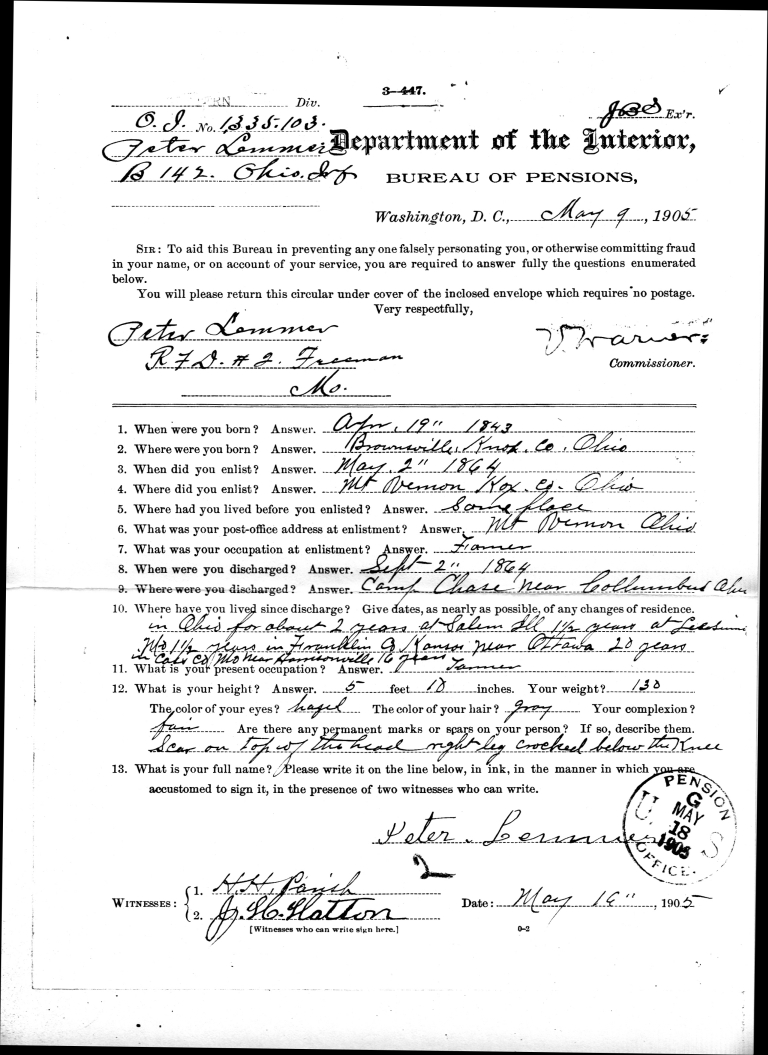 3—447.
Div.
Ex'r.
O. I. No. 1335.103.
Peter Lemmer
Department of the Interior,
B 142. Ohio. Inf
BUREAU OF PENSIONS,
Washington, D. C., May 9, 1905
SIR: To aid this Bureau in preventing any one falsely personating you, or otherwise committing fraud
in your name, or on account of your service, you are required to answer fully the questions enumerated
below.
You will please return this circular under cover of the inclosed envelope which requires no postage.
Very respectfully,
Peter Lemmer
R F D. # 2. Freeman
Mo.
V. Warner
Commissioner.
1. When were you born? Answer. Apr. 19" 1843
2. Where were you born? Answer. Brownsville, Knox. Co. Ohio
3. When did you enlist? Answer. May 2" 1864
4. Where did you enlist? Answer. Mt Vernon Kox. Co. Ohio
5. Where had you lived before you enlisted? Answer. Same place
6. What was your post-office address at enlistment? Answer. Mt Vernon Ohio
7. What was your occupation at enlistment? Answer. Farmer
8. When were you discharged? Answer. Sept 2" 1864
9. Where were you discharged? Answer. Camp Chase near Collumbus Ohio
10. Where have you lived since discharge? Give dates, as nearly as possible, of any changes of residence.
in Ohio for about 2 years at Salem Ill 1½ years at
Mo 1½ years in Franklin Co Kansas near Ottawa 20 years
in Cass Co Mo near Harrisonville 16 years
11. What is your present occupation? Answer. Farmer
12. What is your height? Answer. 5 feet 10 inches. Your weight? 130
The color of your eyes? hazel The color of your hair? gray Your complexion?
fair Are there any permanent marks or scars on your person? If so, describe them.
Scar on top of the head right leg crocked below the Knee
13. What is your full name? Please write it on the line below, in ink, in the manner in which you are
accustomed to sign it, in the presence of two witnesses who can write.
Peter. Lemmer
PENSION
U. S.
G
MAY
18
1905
OFFICE.
2
WITNESSES:
1. H. H. Parish
2. J. H. Hatton
[Witnesses who can write sign here.]
Date: May 16", 1905
0-2